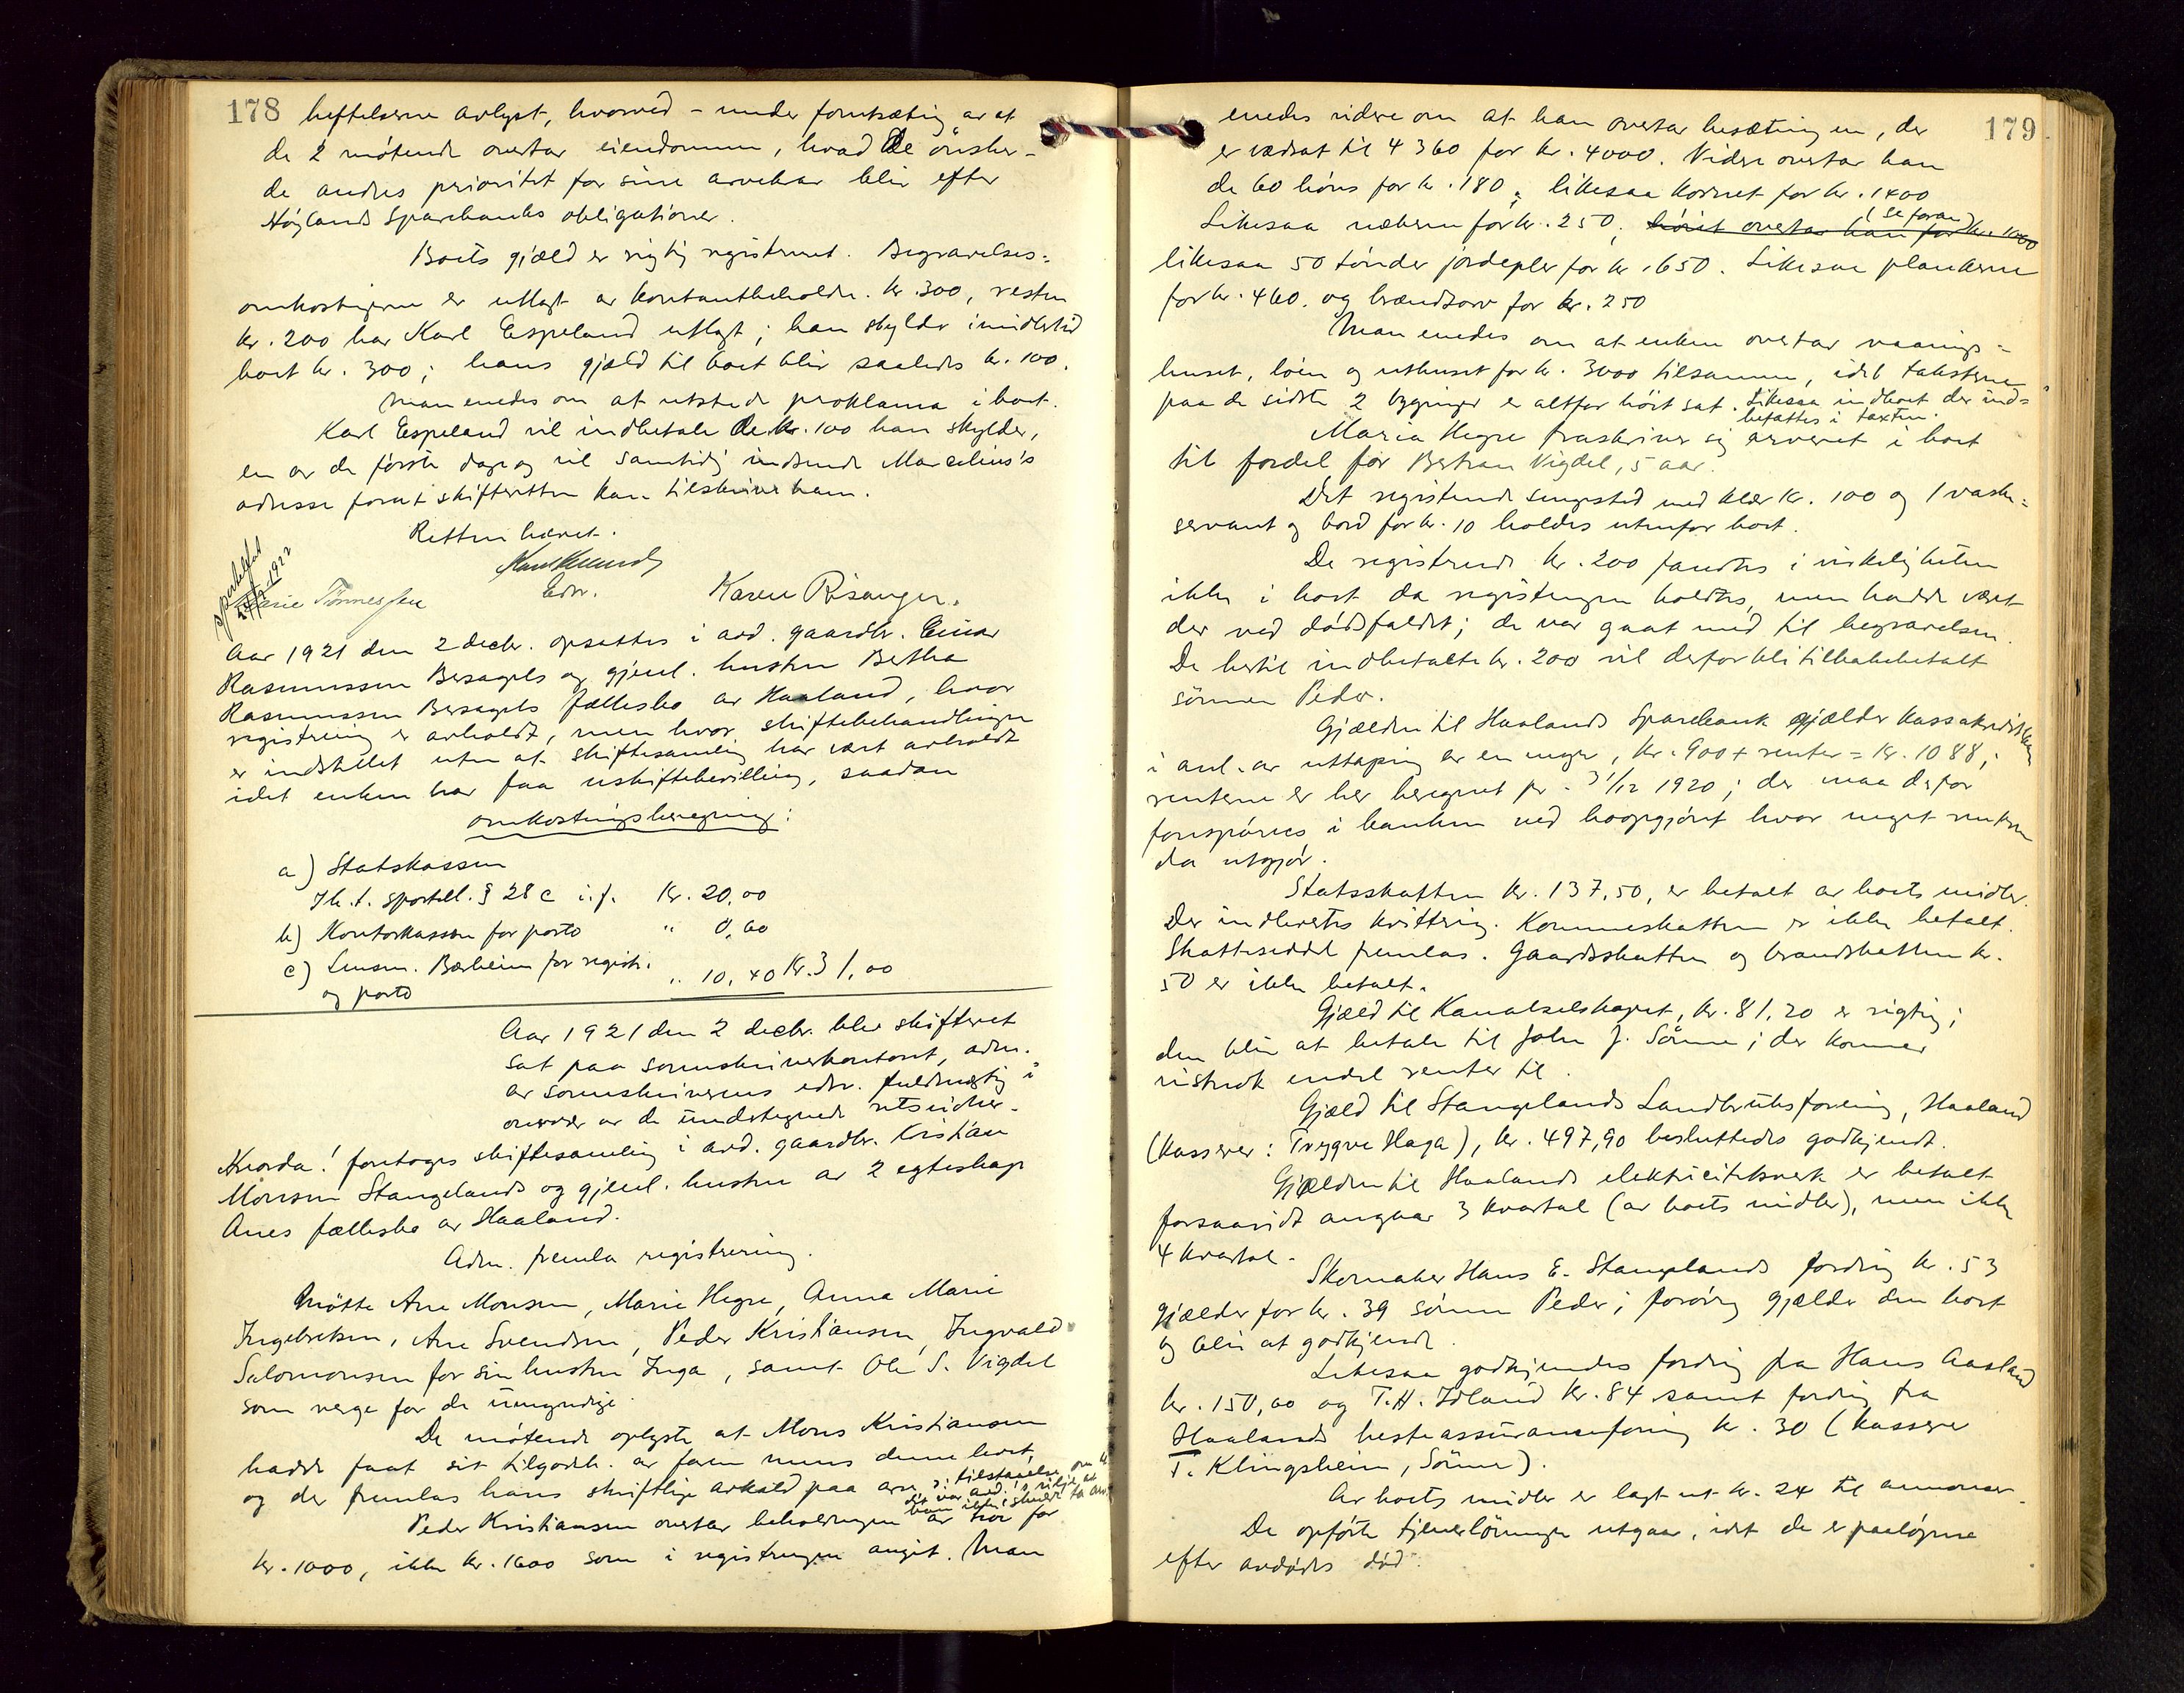 178
heftelserne avlyst, hvorved - under forutsætnig av at
de 2 møtende overtar eiendommen, hvad de ønsker -
de andres prioritet for sine arvekrav blir efter
Høylands Sparebanks obligationer.
Boets gjæld er rigtig registreret. Begravelses-
omkostningerne er utlagt av kontantbeholdn. kr. 300, resten
kr. 200 har Karl Espeland utlagt; han skylder imidlertid
boet kr. 300; hans gjæld til boet blir saaledes kr. 100.
Man enedes om at utstede proklama i boet.
Karl Espeland vil indbetale de kr. 100 han skylder,
en av de første dage og vil samtidig indsende Marselius's
adresse forat skifteretten kan tilskrive ham.
Retten hævet.
Edv.
Marie Tønnessen Karen Risanger.
Aar 1921 den 2 decbr. opsattes i avd. gaardbr. Einar
Rasmussen Bersagels og gjenl. hustru Bertha
Rasmussen Bersagels fællesbo av Haaland, hvor
registrering er avholdt, men hvor skiftebehandlingen
er indstillet uten at skiftesamling har vært avholdt
idet enken har faa uskiftebevilling, saadan
omkostningsberegning:
a) Statskassen
Ih. t. sportell. § 28 c i. f. Kr. 20,00
b) Kontorkassen for porto " 0,60
c) Lensm. Bærheim for registr.
og porto " 10,40 Kr. 31,00
Aar 1921 den 2 decbr. blev skifteret
sat paa sorenskriverkontoret, adm.
av sorenskriverens edsv. fuldmægtig i
overvær av de undertegnede retsvidner.
Hvorda! foretoges skiftesamling i avd. gaardbr. Kristian
Monsen Stangelands og gjenl. hustru av 2 egteskap
Anes fællesbo av Haaland.
Adm. fremla registrering.
Møtte Ane Monsen, Marie Hegre, Anna Marie
Ingebretsen, Ane Svendsen, Peder Kristiansen, Ingvald
Salomonsen for sin hustru Inga, samt Ole S. Vigdel
som verge for de umyndige
De møtende oplyste at Mons Kristiansen
hadde faat sit tilgodeh. av faren mens denne levet,
og der fremlas hans skriftlige avkald paa arv
Peder Kristiansen overtar beholdningen av høi for
kr. 1000, ikke kr. 1600 som i registringen angit. Man
179
enedes videre om at han overtar besætningen, der
er vædsat til 4360 for kr. 4000. Videre overtar han
de 60 høns for kr. 180; likesaa kornet for kr. 1400
(se foran)
Likesaa næperne for kr. 250; høiet overtar han for kr. 1000
likesaa 50 tønder jordepler for kr. 650. Likesaa plankerne
for kr. 460. og brændtorv for kr. 250
Man enedes om at enken overtar vaanings-
huset, løen og uthuset for kr. 3000 tilsammen, idet taksterne
paa de sidste 2 bygninger er altfor høit sat. Likesaa indboet der ind-
befattes i taxten.
Maria Hegre fraskriver sig arveret i boet
til fordel for Bertran Vigdel, 5 aar.
Det registrerede sengested med klær kr. 100 og 1 vaske-
servant og bord for kr. 10 holdes utenfor boet.
De registrerede kr. 200 fandtes i virkeligheten
ikke i boet da registreringen holdtes, men hadde været
der ved dødsfaldet; de var gaat med til begravelsen.
De hertil indbetalte kr. 200 vil derfor bli tilbakebetalt
sønnen Peder.
Gjælden til Haalands Sparebank gjælder kassakreditten
i anl. av uttapning av en myr, kr. 900 + renter = kr. 1088;
renterne er her beregnet pr. 31/12 1920; der maa derfor
forespørres i banken ved boopgjøret hvor meget renterne
da utgjør.
Statsskatten kr. 137,50, er betalt av boets midler.
Der indleverstes kvittering. Kommuneskatten er ikke betalt.
Skatteseddel fremlas. Gaardsskatten og brandskatten kr.
50 er ikke betalt.
Gjæld til Kanalselskapet, kr. 81,20 er rigtig;
den blir at betale til John J. Sømme; der kommer
vistnok endel renter til.
Gjæld til Stangelands Landbruksforening, Haaland
(kasserer: Trygve Haga), kr. 497,90 besluttedes godkjendt.
Gjælden til Haalands elektricitetsverk er betalt
forsaavidt angaar 3 kvartal (av boets midler), men ikke
4 kvartal.
Skomaker Hans E. Stangelands fordring kr. 53
gjælder for kr. 39 sønnen Peder; forøvrig gjælder den boet
og blir at godkjende.
Likesaa godkjendes fordring fra Hans Aasland
kr. 150,00 og T. H. Idland kr. 84 samt fordring fra
Haalands hesteassuranseforening kr. 30 (kasserer
T. Klingsheim, Sømme).
Av boets midler er lagt ut kr. 24 til annonser.
De opførte tjenerlønninger utgaar, idet de er paaløpne
efter avdødes død.